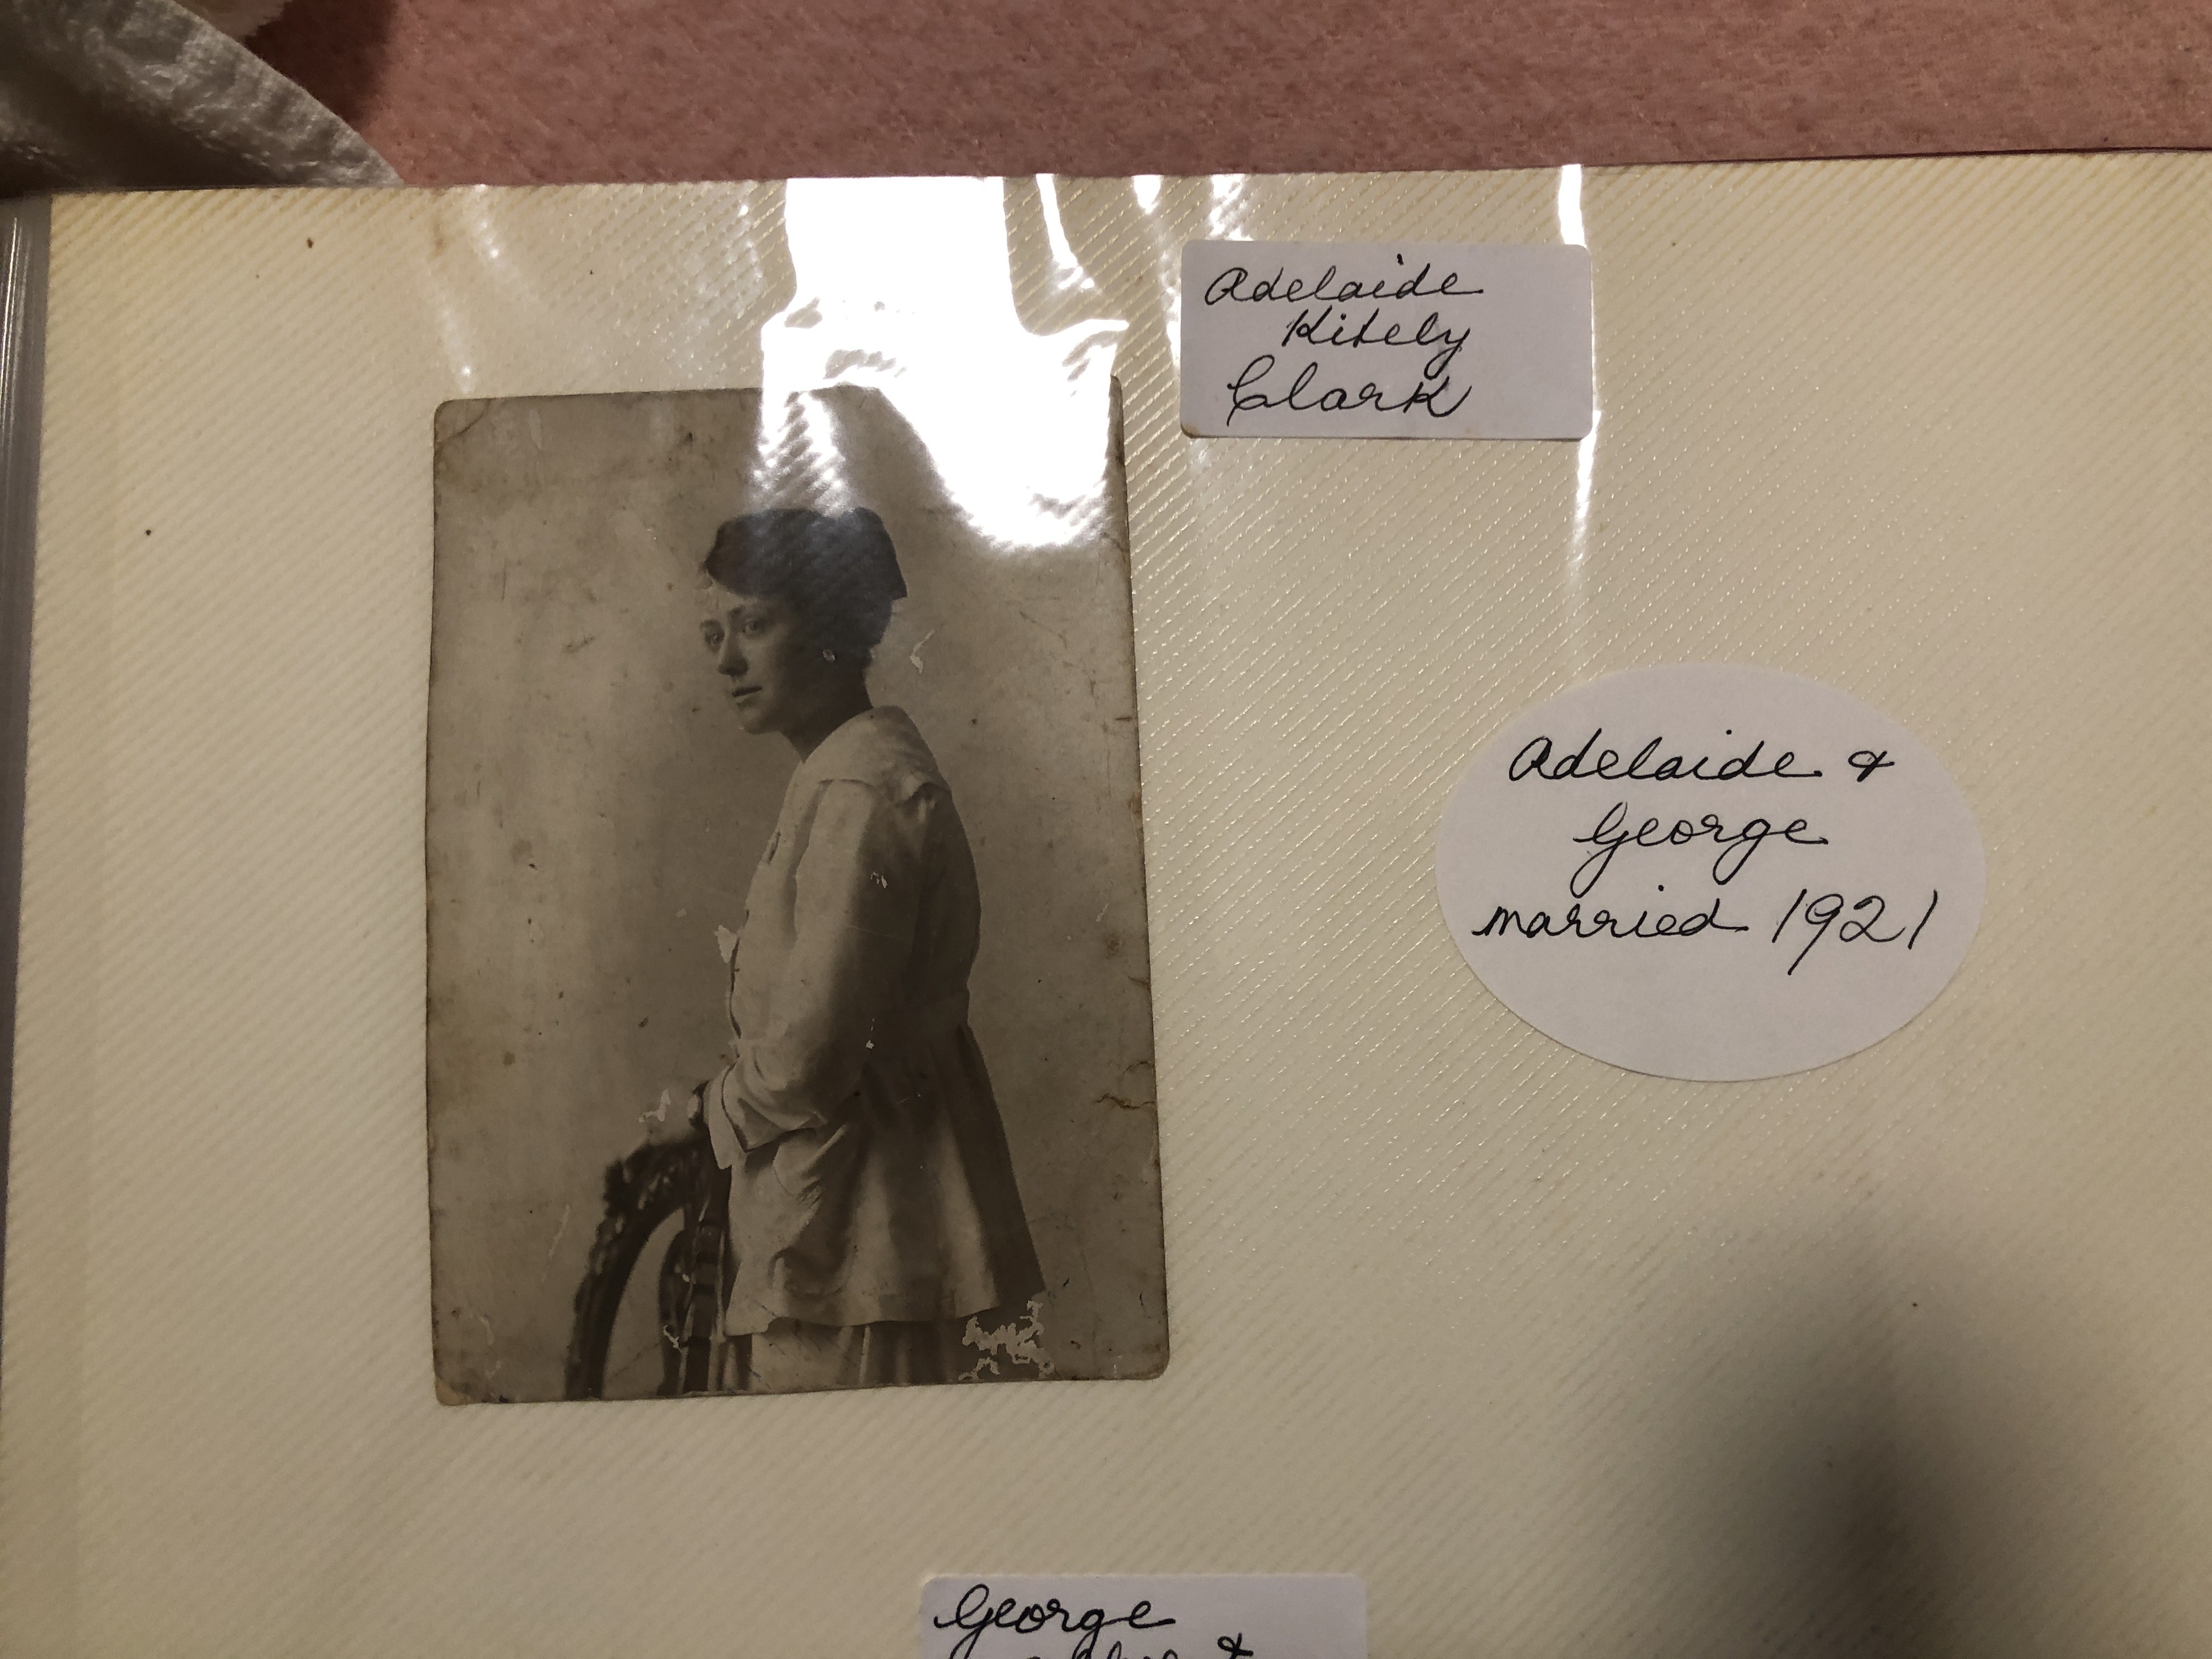 Adelaide
Kitely
Clark
Adelaide &
George
married 1921
George
&